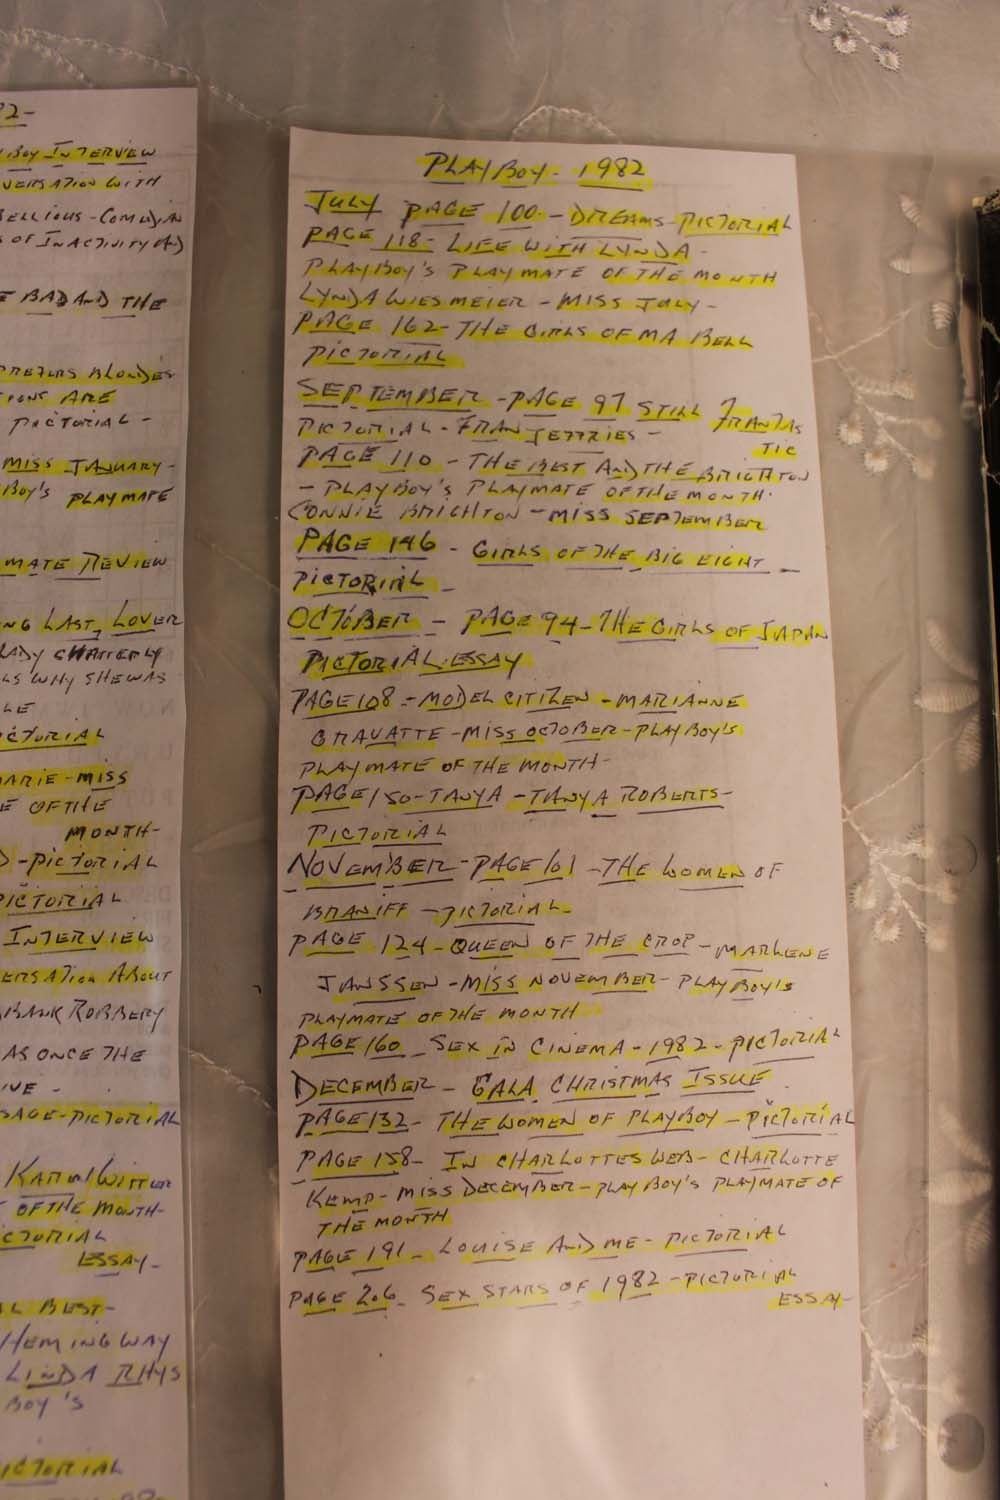 2-
BOY INTERVIEW
VERSATION WITH
BELLIOUS - COMEDIAN
OF INACTIVITY AND
BAD AND THE
PREFERS BLONDES
IONS ARE
PICTORIAL -
MISS JANUARY -
BOY'S PLAYMATE
MATE REVIEW
NG LAST LOVER
LADY CHATTERLY
LS WHY SHE WAS
LE
CTORIAL
MARIE - MISS
E OF THE
MONTH -
D - PICTORIAL
PICTORIAL
INTERVIEW
ERSATION ABOUT
BANK ROBBERY
AS ONCE THE
IVE -
SAGE - PICTORIAL
KARN WITTER
OF THE MONTH -
CTORIAL
ESSAY -
AL BEST -
HEMINGWAY
LINDA RHYS
BOY'S
ICTORIAL
PLAYBOY - 1982
JULY PAGE 100 - DREAMS - PICTORIAL
PAGE 118 - LIFE WITH LYNDA -
PLAYBOY'S PLAYMATE OF THE MONTH
LYNDA WIESMEIER - MISS JULY -
PAGE 162 - THE GIRLS OF MA BELL
PICTORIAL
SEPTEMBER - PAGE 97 STILL FRANTAS
TIC
PICTORIAL - FRAN JEFFRIES -
PAGE 110 - THE BEST AND THE BRIGHTON
- PLAYBOY'S PLAYMATE OF THE MONTH.
CONNIE BRIGHTON - MISS SEPTEMBER
PAGE 146 - GIRLS OF THE BIG EIGHT -
PICTORIAL -
OCTOBER - PAGE 94 - THE GIRLS OF JAPAN
PICTORIAL ESSAY
PAGE 108 - MODEL CITIZEN - MARIANNE
GRAVATTE - MISS OCTOBER - PLAYBOY'S
PLAYMATE OF THE MONTH -
PAGE 150 - TANYA - TANYA ROBERTS -
PICTORIAL
NOVEMBER - PAGE 101 - THE WOMEN OF
BRANIFF - PICTORIAL -
PAGE 124 - QUEEN OF THE CROP - MARLENE
JANSSEN - MISS NOVEMBER - PLAYBOY'S
PLAYMATE OF THE MONTH
PAGE 160 - SEX IN CINEMA - 1982 - PICTORIAL
DECEMBER - GALA CHRISTMAS ISSUE
PAGE 132 - THE WOMEN OF PLAYBOY - PICTORIAL
PAGE 158 - IN CHARLOTTES WEB - CHARLOTTE
KEMP - MISS DECEMBER - PLAYBOY'S PLAYMATE OF
THE MONTH
PAGE 191 - LOUISE AND ME - PICTORIAL
PAGE 206 - SEX STARS OF 1982 - PICTORIAL
ESSAY -